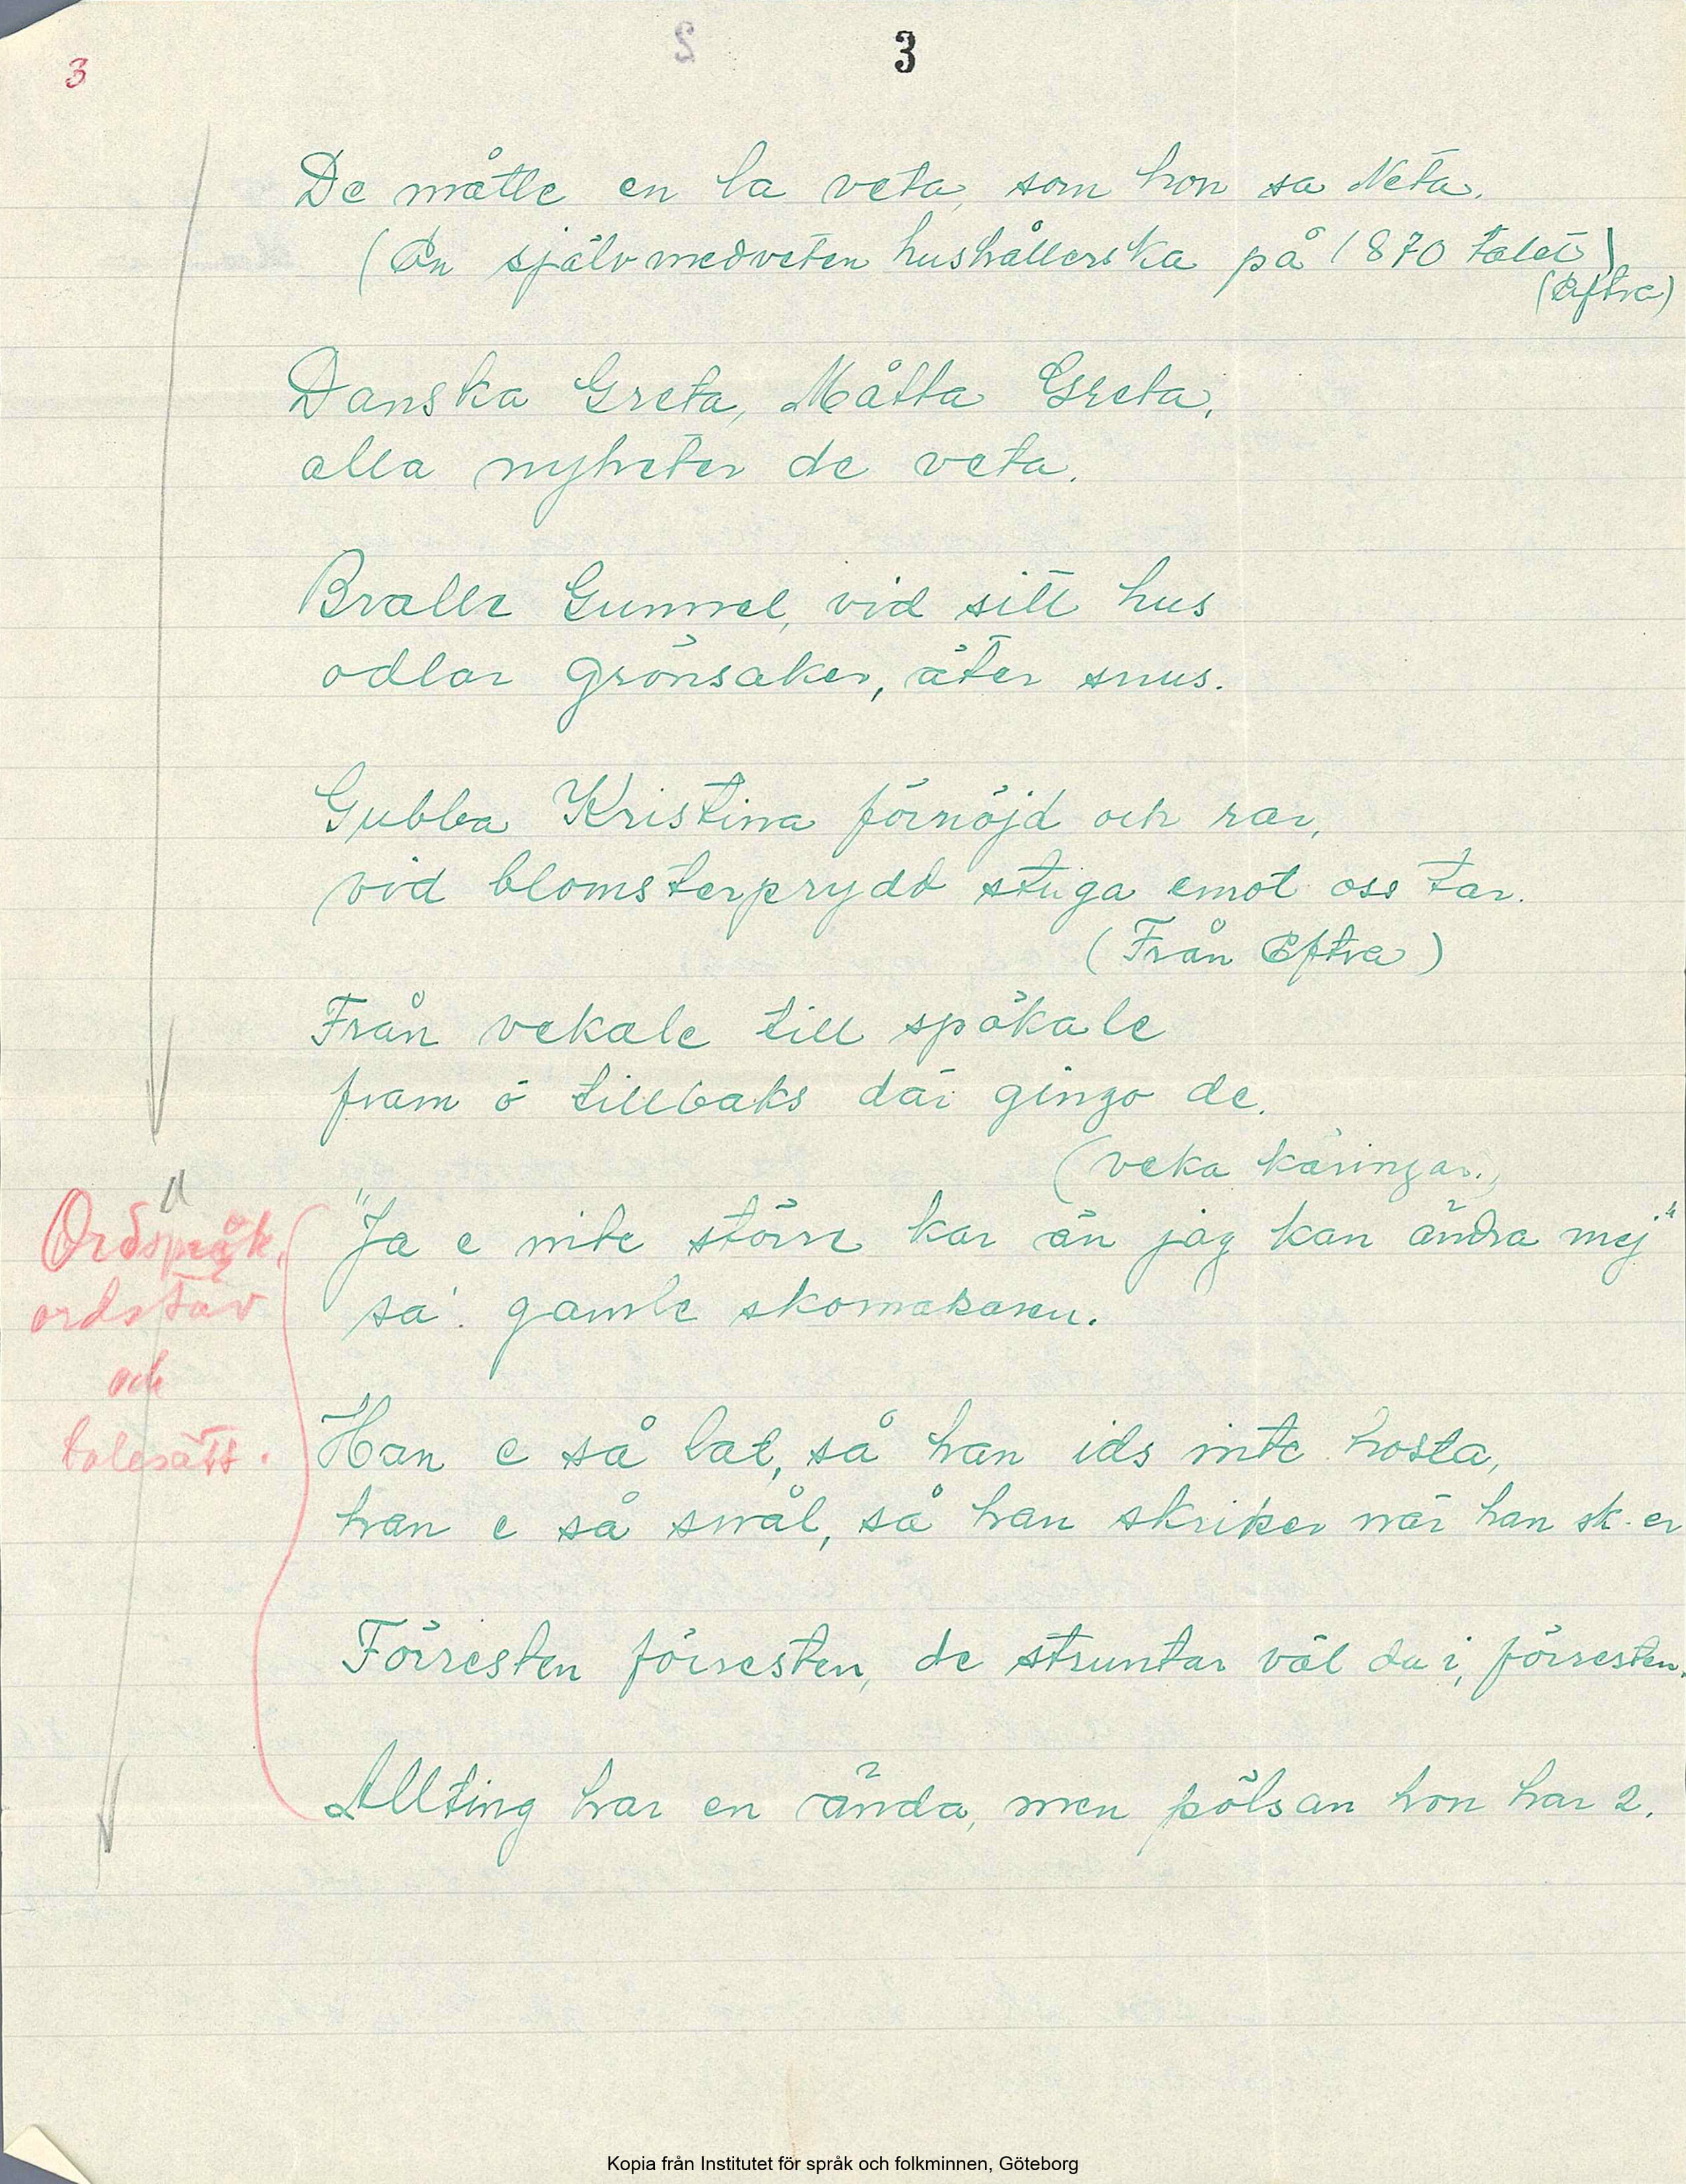 3
2
3
De måtte en la veta, som hon sa Neta.
(En självmedveten hushållerska på 1870 talet)
(Eftra)
Danska Greta, Måtta Greta,
alla nyheter de veta.
Bralle Gunnel, vid sitt hus
odlar grönsaker, äter snus.
Gubba Kristina förnöjd och rar,
vid blomsterprydd stuga emot oss tar.
(Från Eftra)
Från vekale till spökale
fram ö tillbaks där gingo de.
(veka käringar.)
"Ja e inte större kar än jag kan ändra mej"
sa' gamle skomakaren.
Ordspråk,
ordstäv
och
talesätt.
Han e så lat, så han ids inte hosta,
han e så snål, så han skriker när han sk-er
Förresten förresten, de struntar väl da i, förresten.
Allting har en ända, men pölsan hon har 2.
Kopia från Institutet för språk och folkminnen, Göteborg